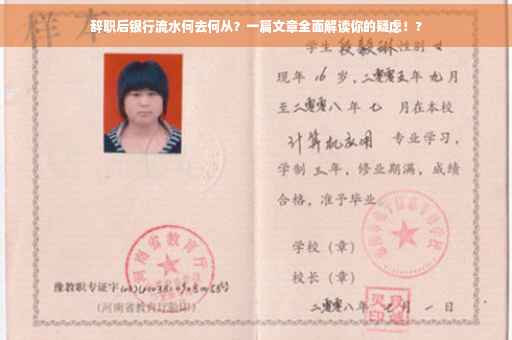 辞职后银行流水何去何从？一篇文章全面解读你的疑虑！？
样本
学生 段毅琳 性别 女
现年 16 岁，二零零五年 九月
至二零零八年 七 月在本校
计算机应用 专业学习，
学制 三 年，修业期满，成绩
合格，准予毕业
学校（章）
校长（章）
二零零八年 七月 一 日
河南省教育厅
豫教职专证字
（河南省教育厅验印）